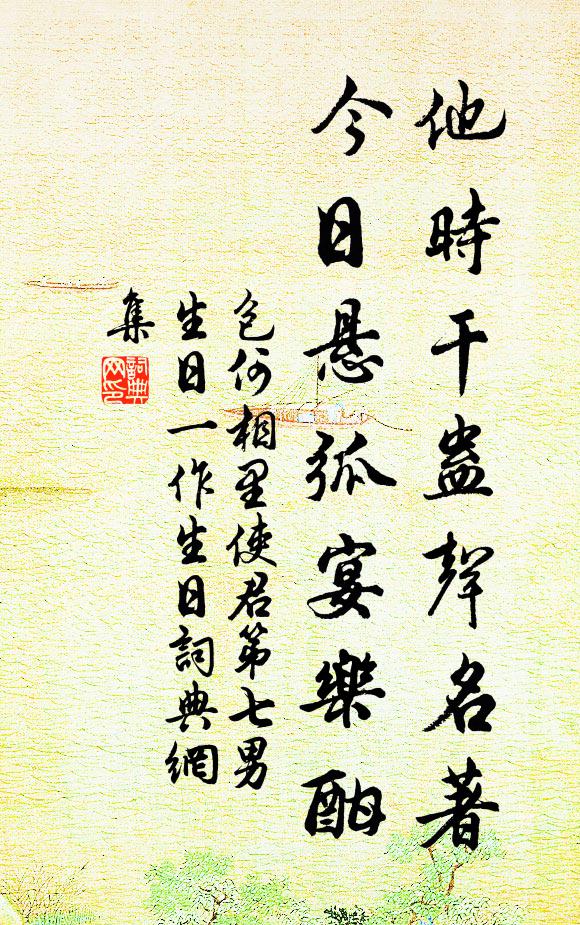 他時干蛊聲名著
今日悬弧宴樂酣
包何相里使君第七男
生日一作生日詞典網
集
詞典
网印